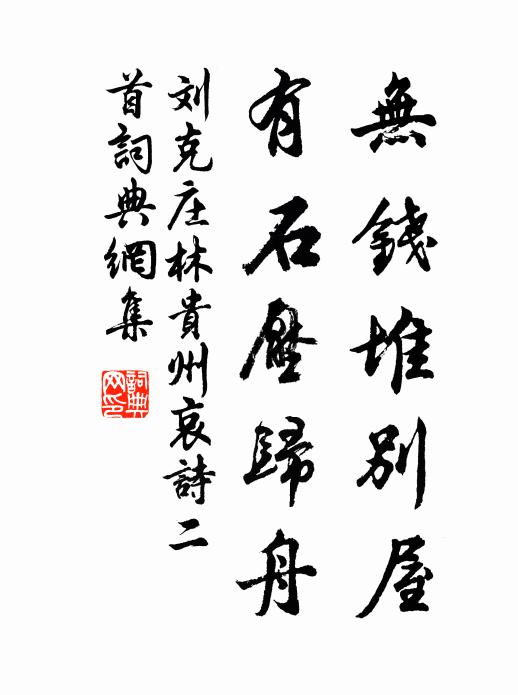 無錢堆別屋
有石壓歸舟
刘克庄林貴州哀詩二
首詞典網集
詞典
网印